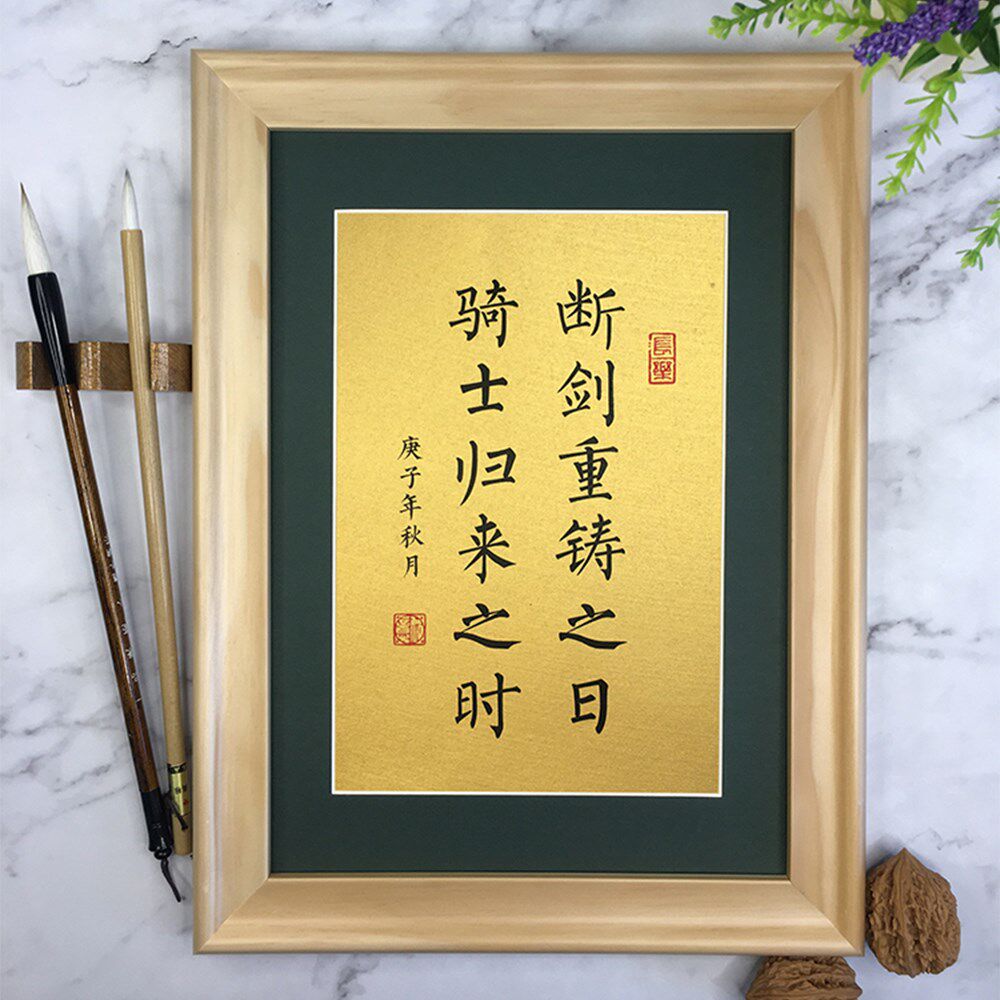 長樂
断剑重铸之日
骑士归来之时
庚子年秋月